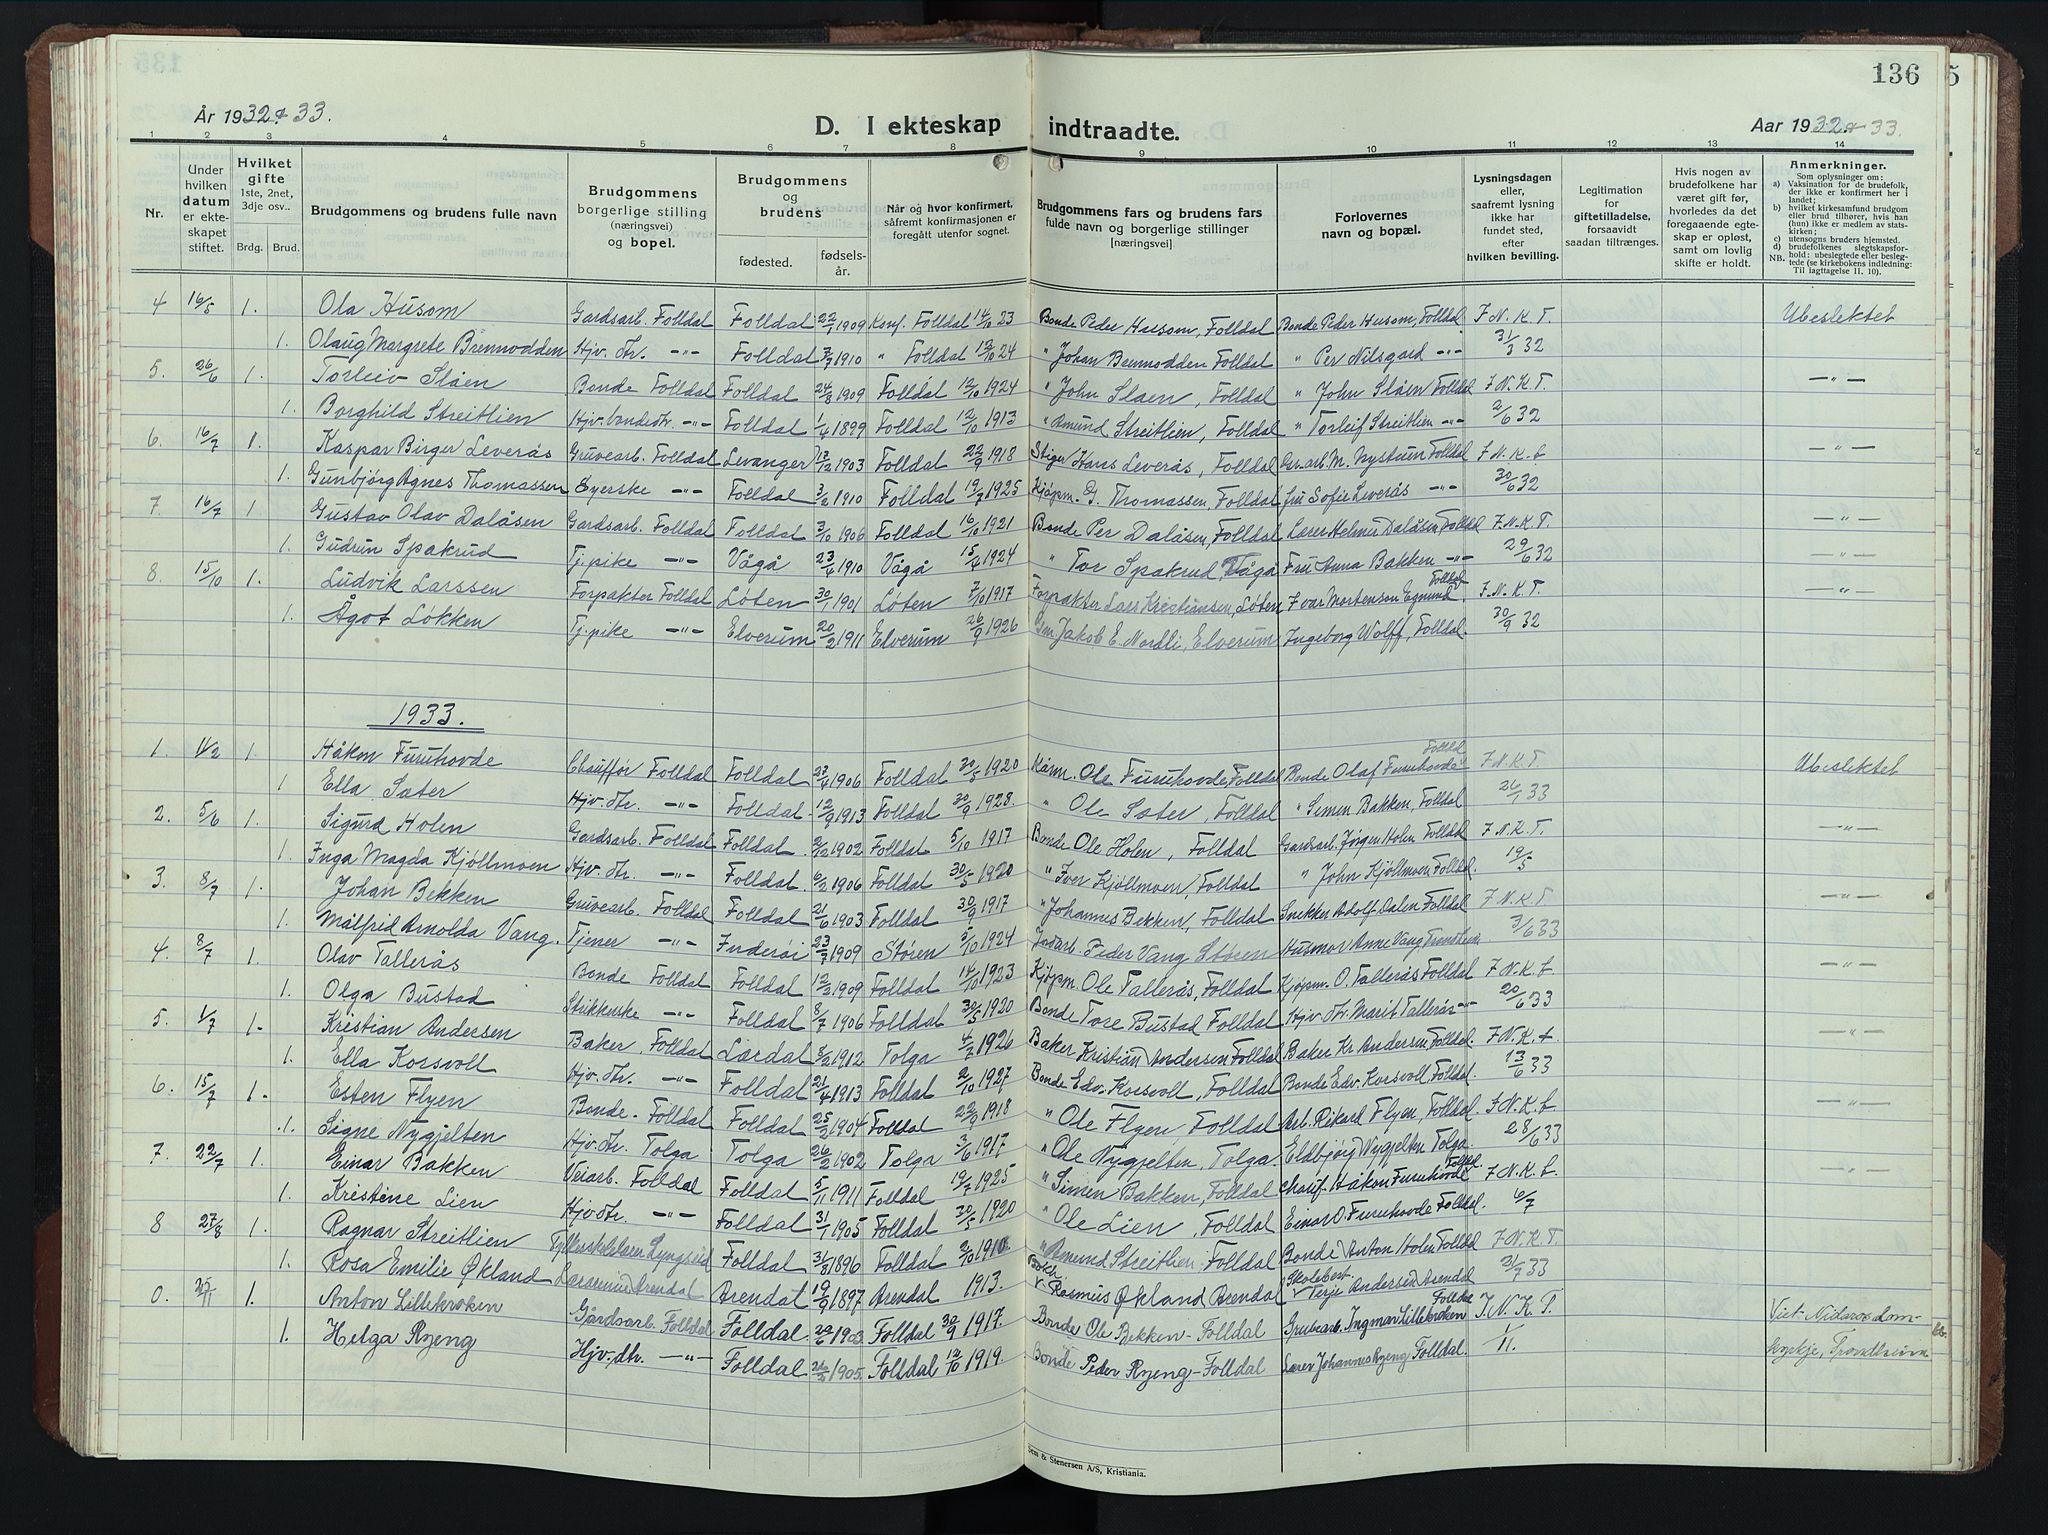 136
År 1932 & 33.
D. I ekteskap indtraadte.
Aar 1932 & 33.
1 2 3 4 5 6 7 8 9 10 11 12 13 14
Nr.
Under hvilken datum er ekteskapet stiftet.
Hvilket gifte 1ste, 2net, 3dje osv..
Brdg. Brud.
Brudgommens og brudens fulle navn
Brudgommens borgerlige stilling (næringsvei) og bopel.
Brudgommens og brudens
fødested. fødselsår.
Når og hvor konfirmert, såfremt konfirmasjonen er foregått utenfor sognet.
Brudgommens fars og brudens fars fulde navn og borgerlige stillinger [næringsvei]
Forlovernes navn og bopæl.
Lysningsdagen eller, saafremt lysning ikke har fundet sted, efter hvilken bevilling.
Legitimation for giftetilladelse, forsaavidt saadan tiltrænges.
Hvis nogen av brudefolkene har været gift før, hvorledes da det foregaaende egteskap er opløst, samt om lovlig skifte er holdt.
Anmerkninger.
Som oplysninger om:
a) Vaksination for de brudefolk, der ikke er konfirmert her i landet;
b) hvilket kirkesamfund brudgom eller brud tilhører, hvis han (hun) ikke er medlem av statskirken;
c) utensogns bruders hjemsted.
d) brudefolkenes slegtskapsforhold: ubeslegtede eller beslegtede (se kirkebokens indledning:
NB. Til iagttagelse II, 10).
4 16/5 1. Ola Husom Gardsarb. Folldal Folldal 22/1 1909 Konf. Folldal 14/10 23 Bonde Peder Husom, Folldal Bonde Peder Husom, Folldal F. N. K. T. Ubeslektet
1. Olaug Margrete Brennodden Hjv. dtr. -"- Folldal 7/7 1910 " Folldal 12/10 24 " Johan Brennodden Folldal " Per Nilsgard -"- 31/3 32
5. 26/6 1. Torleiv Slåen Bonde Folldal Folldal 24/8 1909 Folldal 12/10 1924 " John Slåen, Folldal " John Slåen Folldal F. N. K. T. -"-
1. Borghild Streitlien Hjv. bondedtr. -"- Folldal 1/4 1899 Folldal 12/10 1913 " Amund Streitlien, Folldal " Torleif Streitlien -"- 2/6 32
6. 16/7 1. Kaspar Birger Leverås Gruvearb. Folldal Levanger 13/12 1903 Folldal 22/9 1918 Stiger Hans Leverås, Folldal Gr.arb. M. Nystuen Folldal F. N. K. t. -"-
1. Gunbjørg Agnes Thomassen Syerske -"- Folldal 3/2 1910 Folldal 19/7 1925 Kjøpm. G. Thomassen, Folldal Fru Sofie Leverås -"- 30/6 32
7. 16/7 1 Gustav Olav Dalåsen Gardsarb. Folldal Folldal 3/10 1906 Folldal 16/10 1921 Bonde Per Dalåsen, Folldal Lærer Helmer Dalåsen, Folldal F. N. K. T. -"-
1. Gudrun Spakrud Tj.pike -"- Vågå 23/4 1910 Vågå 15/4 1924 " Tor Spakrud, Vågå Fru Anna Bakken -"- 29/6 32
8. 15/10 1. Ludvik Larssen Forpakter Folldal Løten 30/1 1901 Løten 7/10 1917 Forpakter Lars Kristiansen, Løten Ivar Mortenson Egnund Folldal F. N. K. T. -"-
1. Ågot Løkken Tj.pike -"- Elverum 20/2 1911 Elverum 26/9 1926 Jakob E. Nordli, Elverum Ingeborg Wolff, Folldal. 30/9 32
1933.
1. 11/2 1. Håkon Furuhovde Chauffør Folldal Folldal 27/4 1906 Folldal 30/5 1920 Ole Furuhovde Folldal Bonde Olaf Furuhovde Folldal F. N. K. T. Ubeslektet
1 Ella Sæter Hjv. dtr. -"- Folldal 12/9 1913 Folldal 30/9 1928. " Ole Sæter, Folldal " Simen Bakken, Folldal 26/1 33
2. 5/6 1. Sigurd Holen Gardsarb. Folldal Folldal 2/12 1902 Folldal 5/10 1917 Bonde Ole Holen, Folldal Gardsarb. Jørgen Holen Folldal F. N. K. T. -"-
1. Inga Magda Kjøllmoen Hjv. dtr. -"- Folldal 6/2 1906 Folldal 30/5 1920 " Iver Kjøllmoen, Folldal " John Kjøllmoen Folldal. 19/5
3. 8/7 1. Johan Bekken Gruvearb. Folldal Folldal 21/6 1903 Folldal 30/9 1917 " Johannes Bekken, Folldal Snekker Adolf Dalen Folldal F. N. K. T -"-
1. Målfrid Arnolda Vang. Tjener -"- Inderøi 23/7 1909 Støren 5/10 1924 Peder Vang Støren Husmor Anne Vang Trondheim 3/6 33
4. 8/7 1. Olav Tallerås Bonde Folldal Folldal 12/3 1909 Folldal 14/10 1923 Kjøpm. Ole Tallerås, Folldal Kjøpm. O. Tallerås Folldal F. N. K. t. -"-
1. Olga Bustad Strikkerske -"- Folldal 8/7 1906 Folldal 30/5 1920 Bonde Tore Bustad Folldal Hjv. dtr. Marit Tallerås -"- 20/6 33
5. 1/7 1. Kristian Andersen Baker, Folldal Lærdal 8/2 1912 Tolga 4/7 1926 Baker Kristian Andersen Folldal Baker Kr. Andersen Folldal. F. N. K. t -"-
1. Ella Korsvoll Hjv. dtr. -"- Folldal 21/4 1913 Folldal 2/10 1927 Bonde Edv. Korsvoll, Folldal Bonde Edv. Korsvoll, Folldal. 13/6 33
6. 15/7 1. Esten Flyen Bonde. Folldal Folldal 25/2 1904 Folldal 22/9 1918 " Ole Flyen, Folldal Arb. Rikard Flyen, Folldal. F. N. K. t -"-
1. Signe Nygjelten Hjv. dtr. Tolga Tolga 26/2 1902 Tolga 3/6 1917 " Ole Nygjelten, Tolga. Eldbjørg Nygjelten Tolga. 28/6 33
7. 22/7 1. Einar Bakken Veiarb. Folldal Folldal 5/11 1911 Folldal 19/7 1925 " Simen Bakken, Folldal Chauf. Håkon Furuhovde Folldal. F. N. K. t. "
1. Kristine Lien Hjv. dtr. -"- Folldal 31/1 1905 Folldal 30/5 1920 " Ole Lien, Folldal Einar O. Furuhovde Folldal. 6/7
8 27/8 1. Ragnar Streitlien Folldal 31/8 1896 Folldal 2/10 1910. " Amund Streitlien - Folldal Bonde Anton Holen Folldal F. N. K. T.
1. Rosa Emilie Økland Lærerinne Arendal Arendal 19/9 1897 Arendal 1913. Rasmus Økland Arendal Skolebest. Terje Andersen Arendal 31/7 33
0. 25/11 1. Anton Lillekroken Gårdsarb. Folldal Folldal 20/6 1903 Folldal 30/9 1917. Bonde Ole Bekken - Folldal Grubearb. Ingmar Lillekroken Folldal F. N. K. T. Viet Nidarosdomkyrkje, Trondheim
1. Helga Ryeng Hjv. dtr. -"- Folldal 26/5 1905. Folldal 12/10 1919. Bonde Peder Ryeng - Folldal Lærer Johannes Ryeng Folldal. 1/11.
Sem & Stenersen A/S, Kristiania.